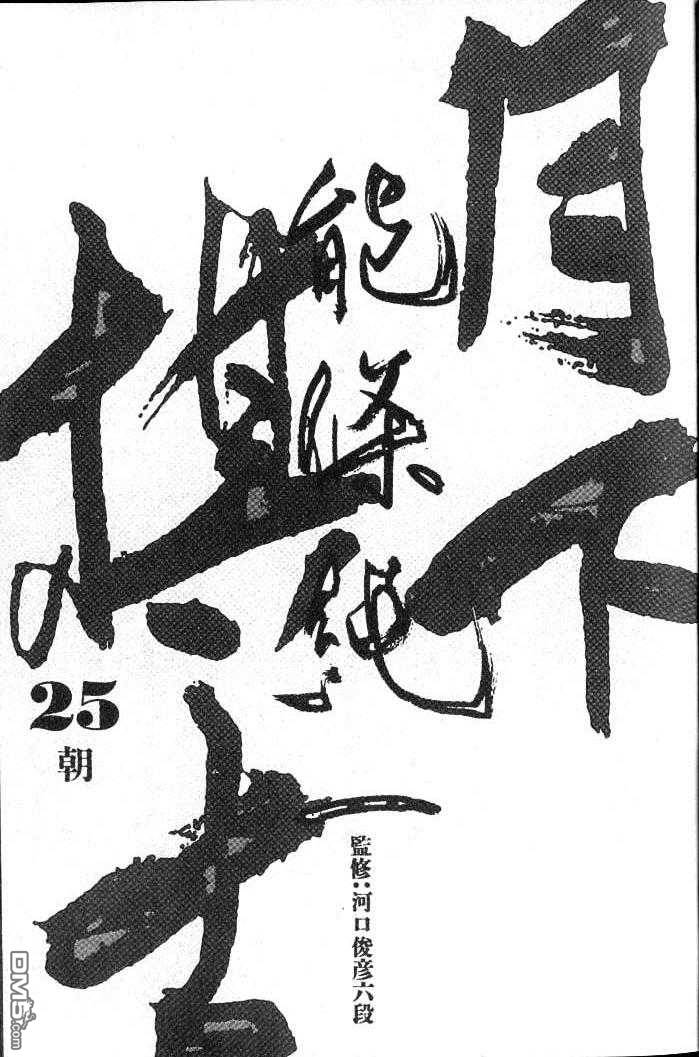 月下の棋士
能條純一
25
朝
監修:河口俊彦六段
DM5.com